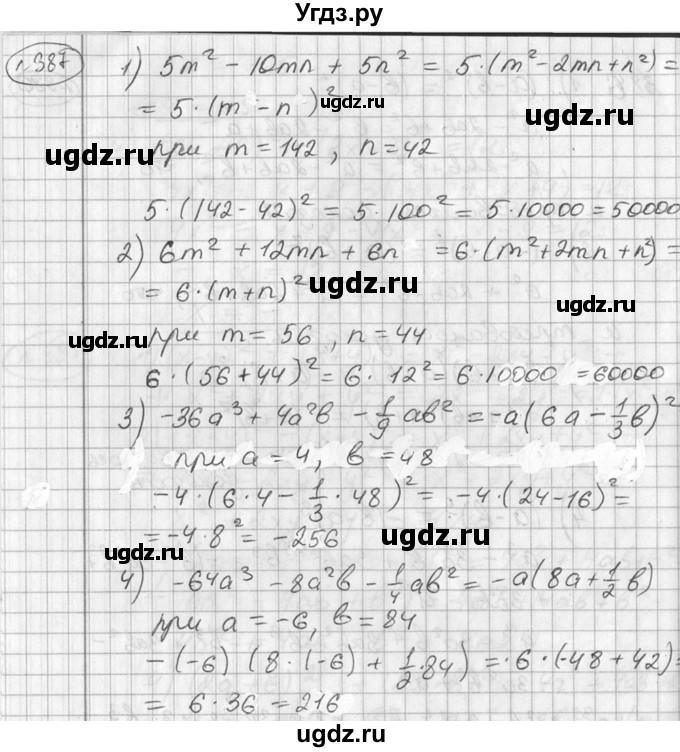 Угдз.ру
н.387
1) 5m² - 10mn + 5n² = 5·(m² - 2mn + n²) =
= 5·(m - n)²
ugdz.ru ugdz.ru
ugdz.ru
при m = 142, n = 42
ugdz.ru
5·(142 - 42)² = 5·100² = 5·10000 = 50000
ugdz.ru
2) 6m² + 12mn + 6n = 6·(m² + 2mn + n²) =
ugdz.ru
= 6·(m + n)²
ugdz.ru
ugdz.ru
при m = 56, n = 44
ugdz.ru
6·(56 + 44)² = 6·12² = 6·10000 = 60000
3) -36a³ + 4a²в - 1/9 aв² = -a(6a - 1/3 в)²
ugdz.ru
при a = 4, в = 48
-4·(6·4 - 1/3·48)² = -4·(24 - 16)² =
= -4·8² = -256
ugdz.ru ugdz.ru
ugdz.ru
4) -64a³ - 8a²в - 1/4 aв² = -a(8a + 1/2 в)
при a = -6, в = 84
ugdz.ru
-(-6) (8·(-6) + 1/2·84) = ·6·(-48 + 42) =
= 6·36 = 216
ugdz.ru
ugdz.ru